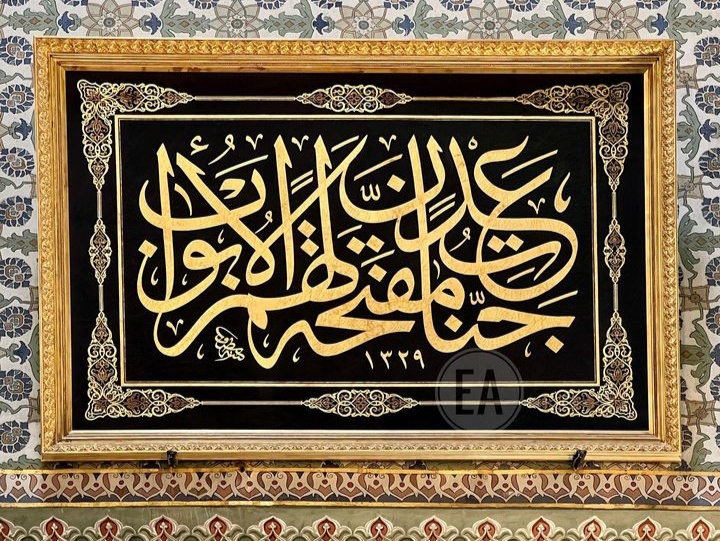 جَنَّاتِ عَدْنٍ مُفَتَّحَةً لَهُمُ الْأَبْوَابُ
١٣٢٩
EA